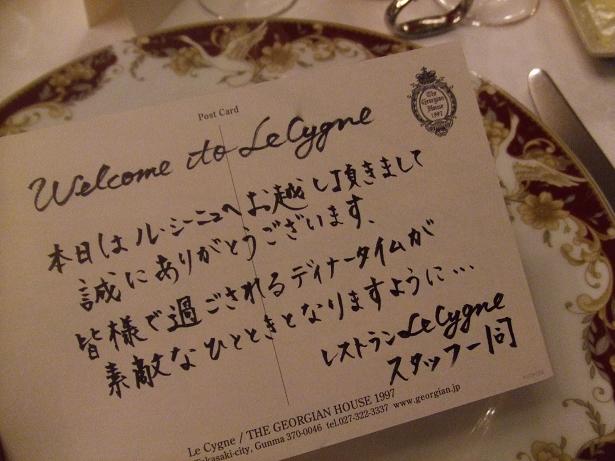 The
Georgian
House
1997
Post Card
Welcome to Le Cygne
本日は ル・シーニュへお越し頂きまして
誠にありがとうございます、
皆様で過ごされるディナータイムが
素敵なひとときとなりますように…
レストラン Le Cygne
スタッフ一同
Le Cygne / THE GEORGIAN HOUSE 1997
Takasaki-city, Gunma 370-0046 tel.027-322-3337 www.georgian.jp